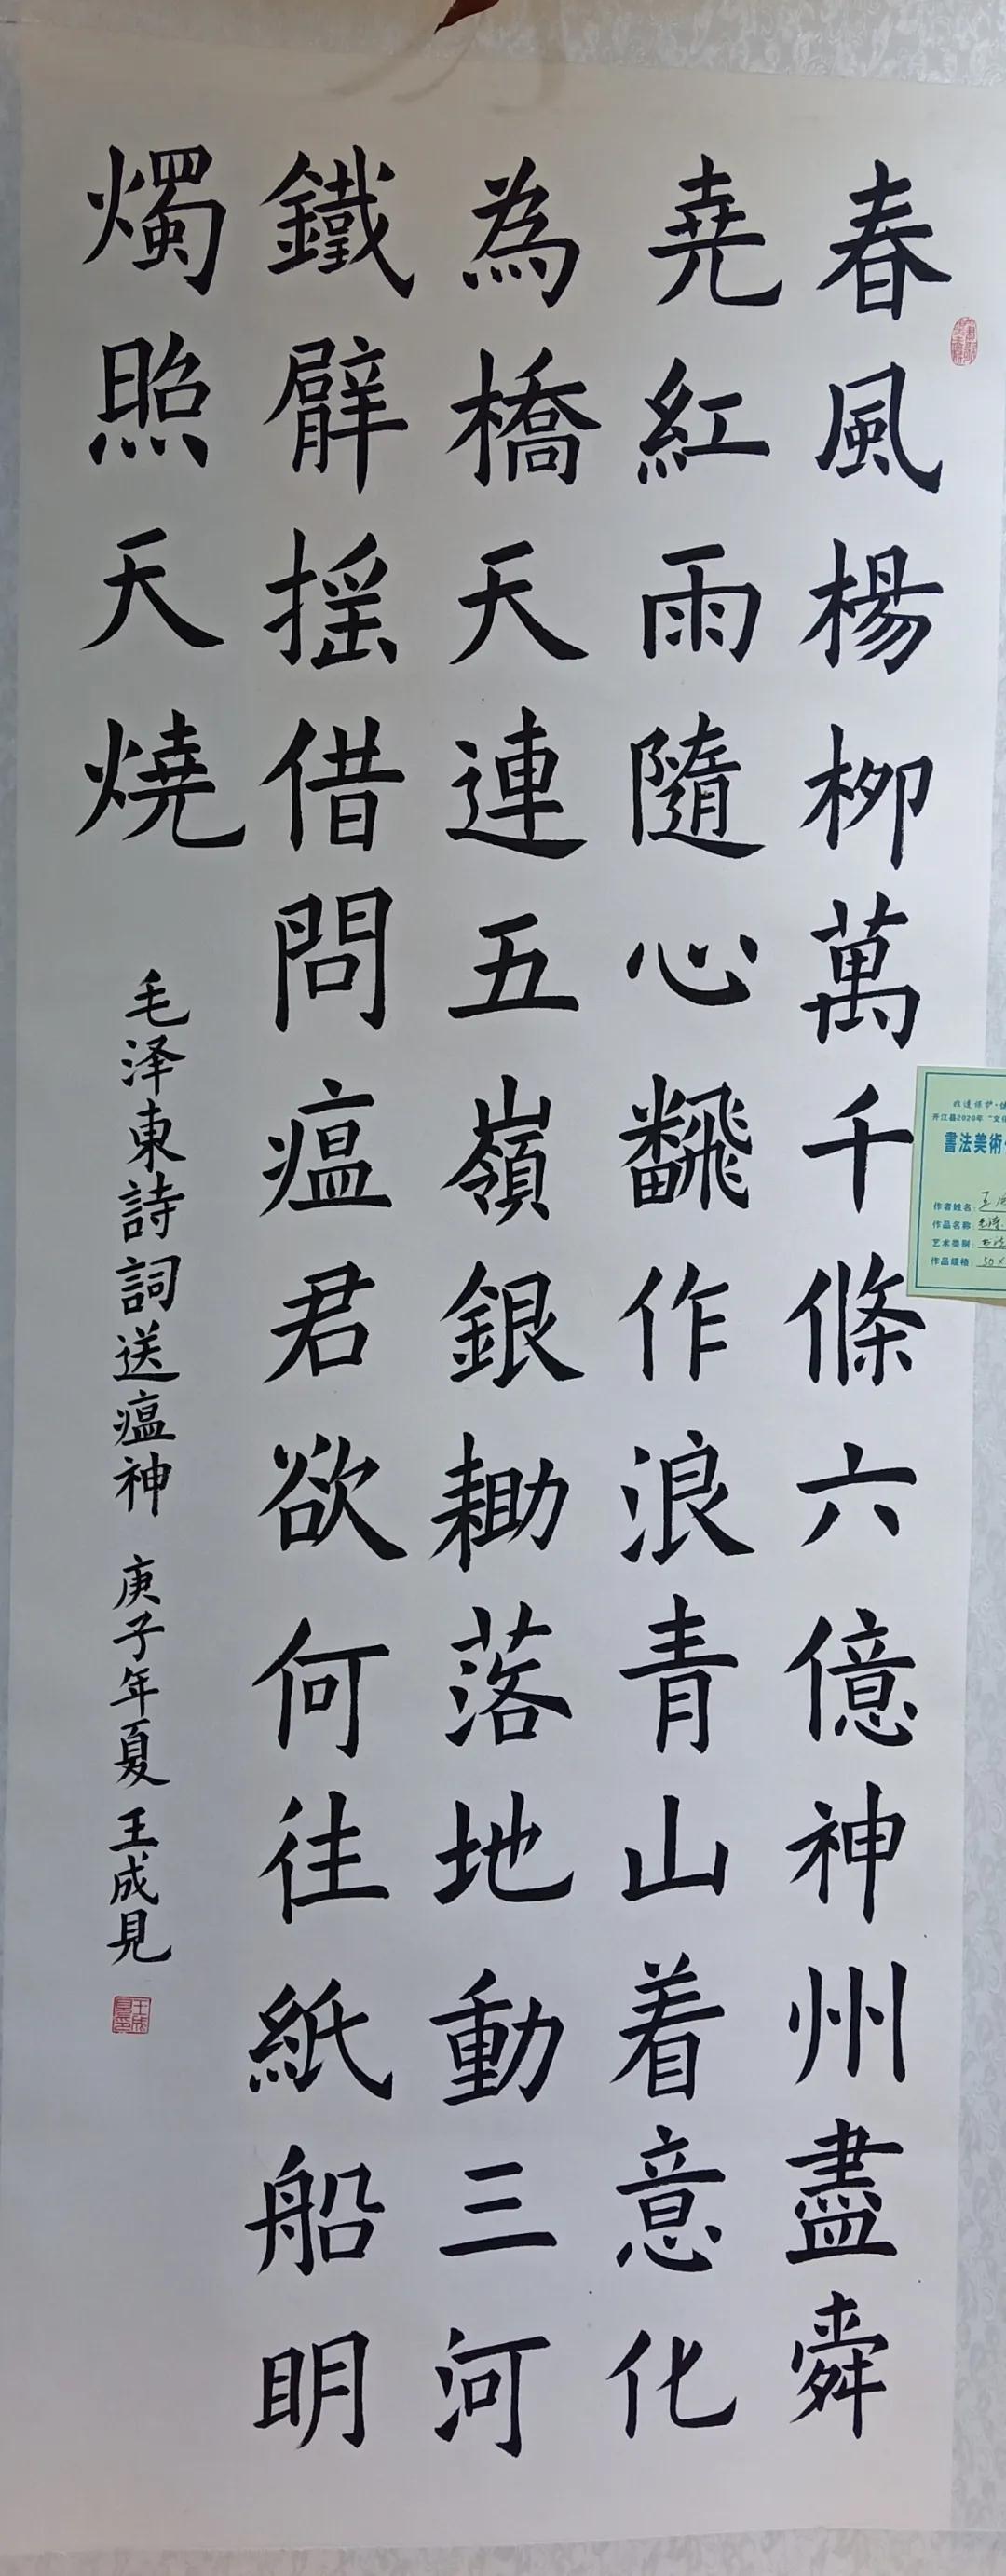 春風楊栁萬千條六億神州盡舜
堯紅雨隨心飜作浪青山着意化
為橋天連五嶺銀耡落地動三河
鐵臂摇借問瘟君欲何往紙船明
燭照天燒
毛泽東詩詞送瘟神 庚子年夏 王成見
非遗保护·
开江县2020年“文
書法美術
作者姓名：王
作品名称：
艺术类别：
作品规格：50×